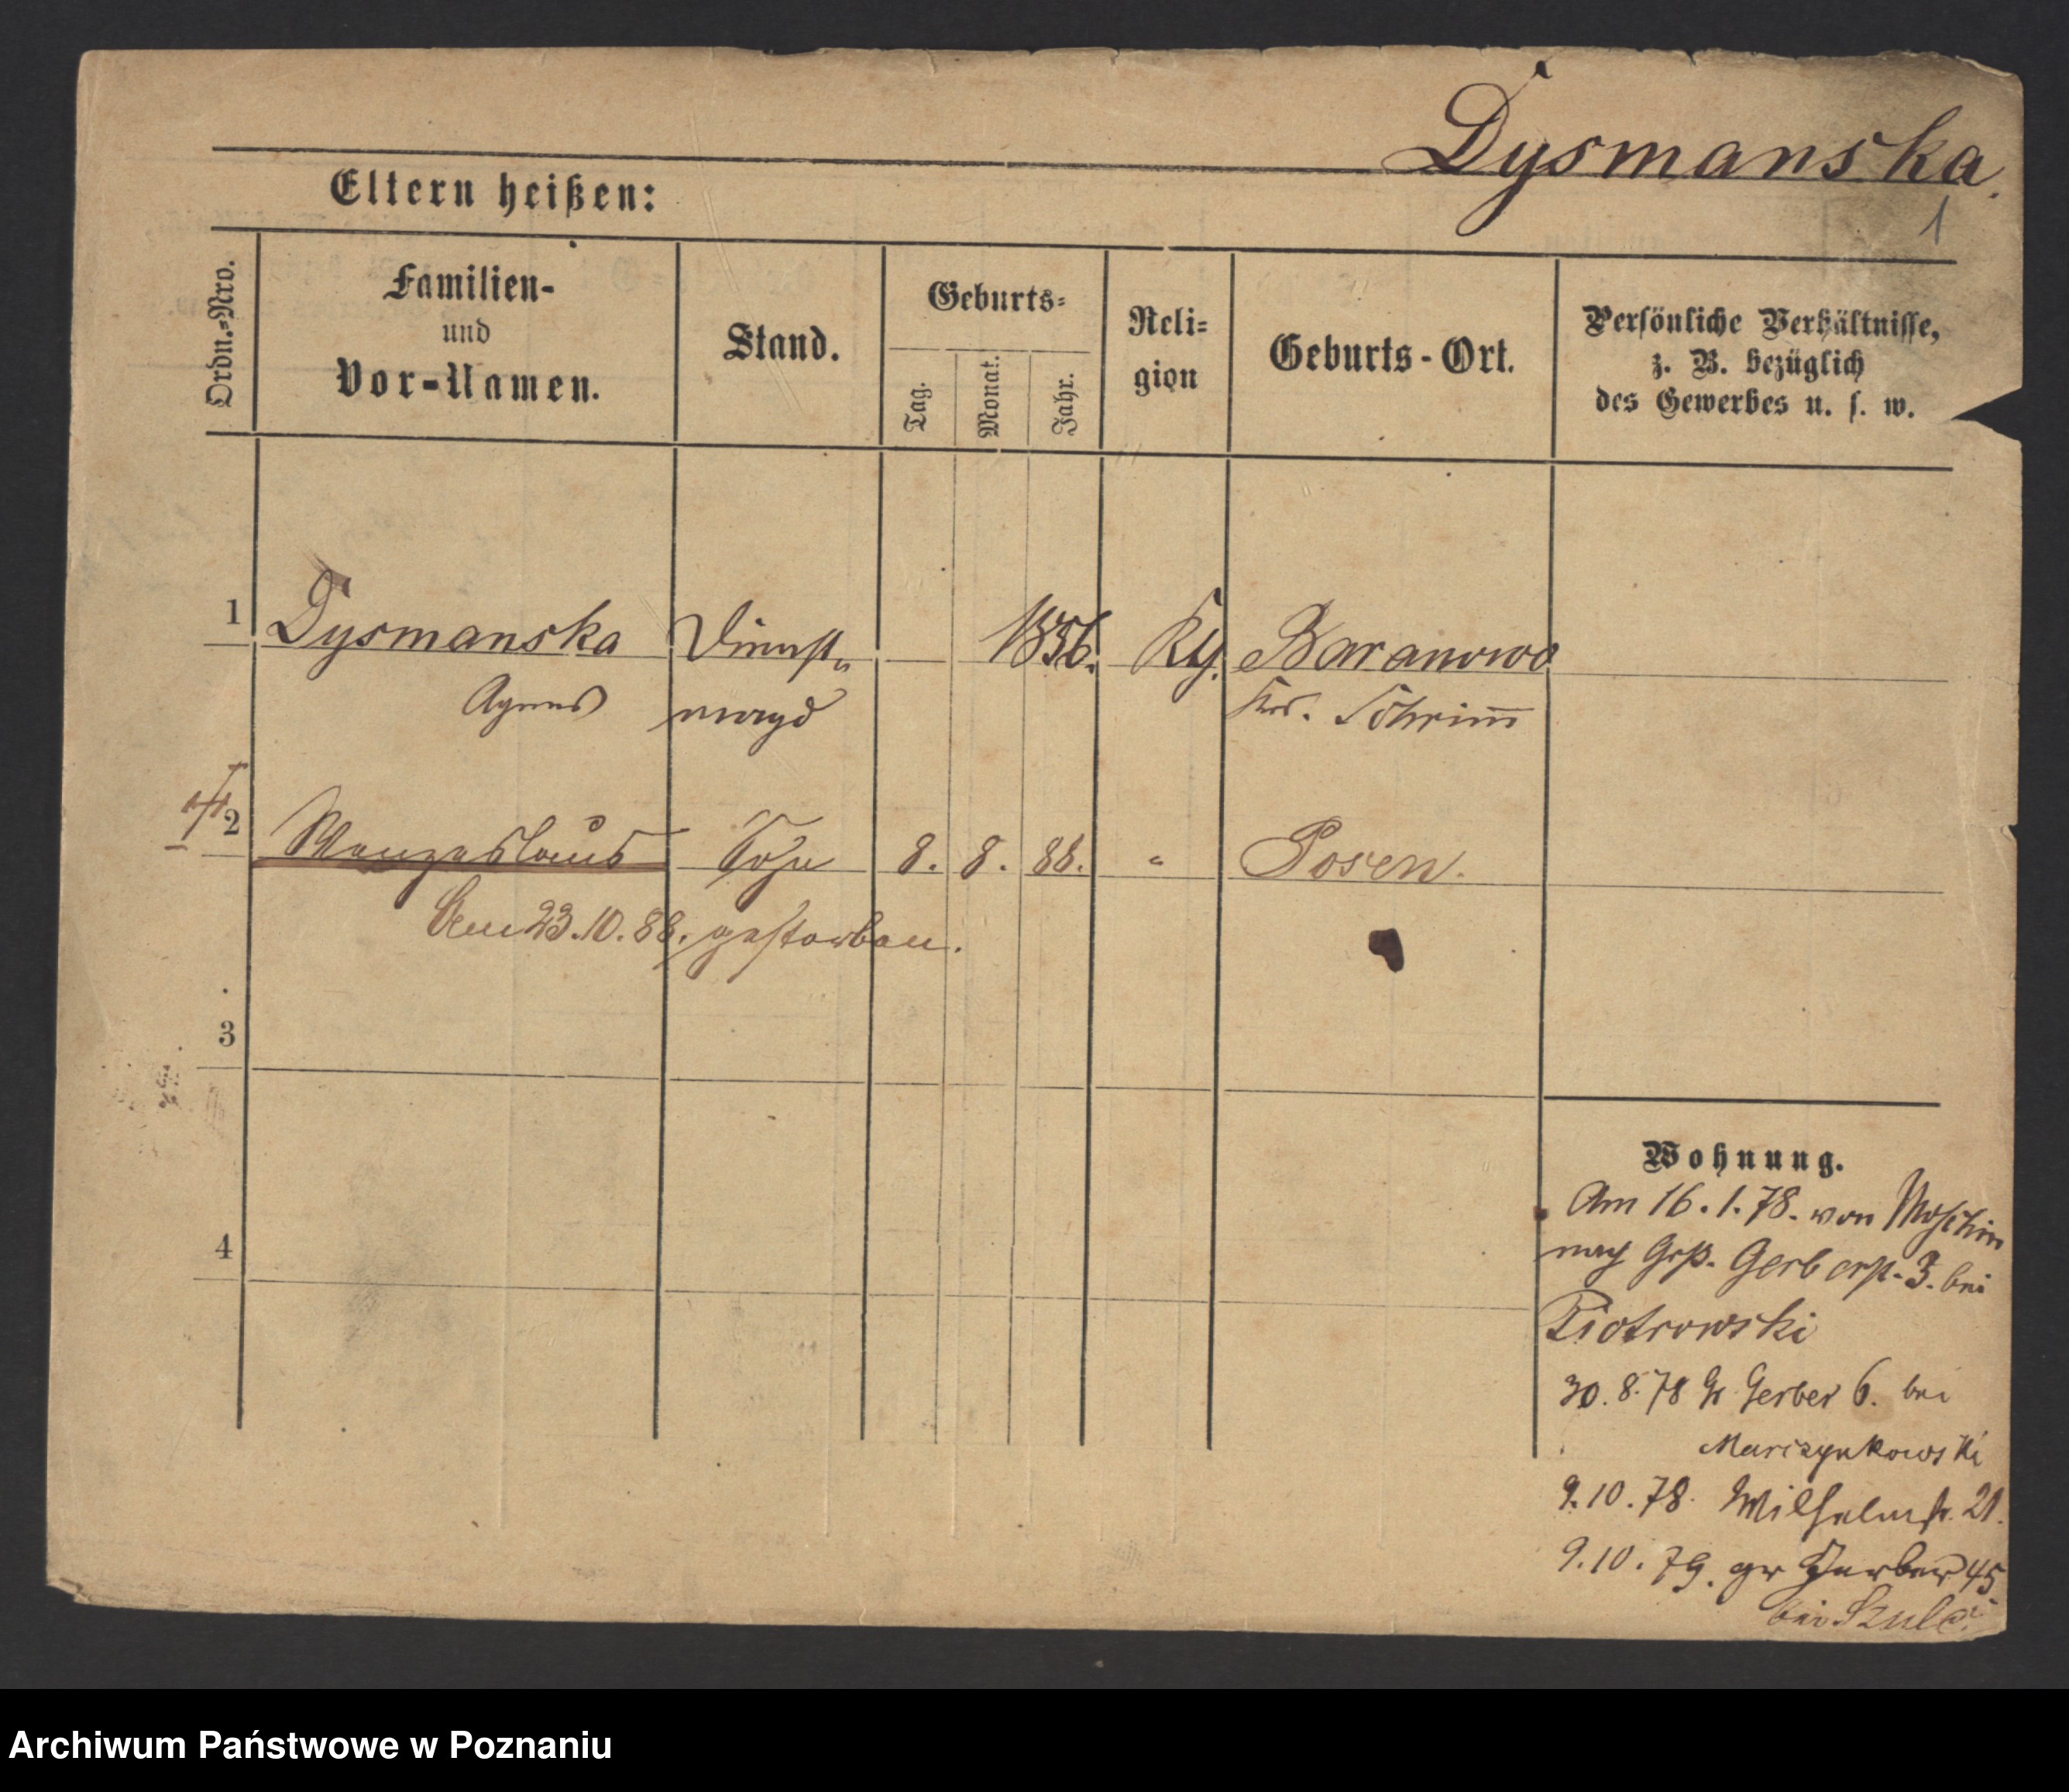 Dysmanska.
1
Eltern heißen:
Ordn.=Nro.
Familien-
und
Vor-Namen.
Stand.
Geburts=
Tag.
Monat.
Jahr.
Reli=
gion
Geburts-Ort.
Persönliche Verhältnisse,
z. B. bezüglich
des Gewerbes u. s. w.
1 Dysmanska Dienst= 1856. Kth. Baranowo
Agnes magd Krs. Schrim̅
2 Wenzeslaus Sohn 8. 8. 88. " Posen.
Am 23.10.88. gestorben.
3
4
Wohnung.
Am 16.1.78. von Moschin
nach Grß. Gerberst. 3. bei
Piotrowski
30.8.78 Gr Gerber 6. bei
Marczynkowski
9.10.78. Wilhelmstr. 21.
9.10.79. gr Gerber 45
bei Szulc.
Archiwum Państwowe w Poznaniu